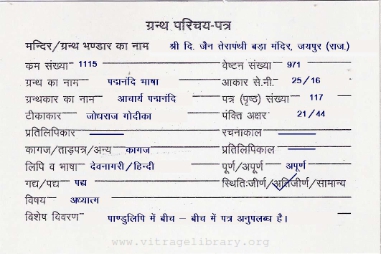 ग्रन्थ परिचय-पत्र
मन्दिर/ग्रन्थ भण्डार का नाम श्री दि. जैन तेरापंथी बड़ा मंदिर, जयपुर (राज.)
क्रम संख्या 1115 वेष्टन संख्या 971
ग्रन्थ का नाम पद्मनंदि भाषा आकार से.मी. 25/16
ग्रन्थकार का नाम आचार्य पद्मनंदि पत्र (पृष्ठ) संख्या 117
टीकाकार जोधराज गोदीका पंक्ति अक्षर 21/44
प्रतिलिपिकार रचनाकाल
कागज/ताड़पत्र/अन्य कागज प्रतिलिपिकाल
लिपि व भाषा देवनागरी/हिन्दी पूर्ण/अपूर्ण अपूर्ण
गद्य/पद्य पद्य स्थितिःजीर्ण/अतिजीर्ण/सामान्य
विषय अध्यात्म
विशेष विवरण पाण्डुलिपि में बीच - बीच में पत्र अनुपलब्ध है।
www.vitragelibrary.org